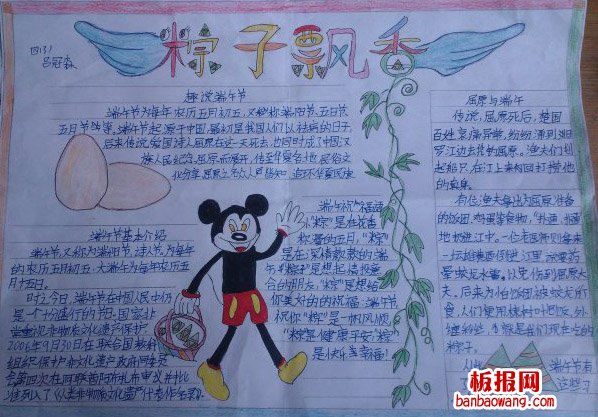 粽子飘香
四(3)
吕冠森
趣谈端午节
端午节为每年农历五月初五,又称端阳节、五日节、
五月节等。端午节起源于中国,最初是我国人们以祛病的日子,
后来传说爱国诗人屈原在这一天死去,也同时成了中国汉
族人民纪念屈原
端午节基本介绍
端午节又称为端阳节、诗人节,为每年
的农历五月初五,大端午节为每年农历五
月十五日。
时至今日,端午节在中国人民中仍
是一个十分盛行的节日,国家非
常重视非物质文化遗产保护,
2006年9月30日在联合国教科
组织保护非物质文化遗产政府间委员
会第四次
准列入了《人类非物质文化遗产代表作名录》
端午祝“福语
“粽”是在花香
粽香的五月,“粽”
是在深情款款的端
午,“粽”是想起情投意
合的朋友,“粽”是想给
你美好的的祝福:端午节
祝你“粽”是一帆风顺,
“粽”是健康平安,“粽”
是快乐幸福!
屈原与端午
传说,屈原死后,楚国
百姓哀痛异常,纷纷涌到汨
罗江边去凭吊屈原。渔夫们划
起船只,在江上来回打捞他
的真身。
有位渔夫拿出为屈原准备
的饭团、鸡蛋等食物,“扑通、扑通”
地丢进江中。一位老医师则拿来
一坛雄黄酒倒进江里,
晕蛟龙水兽,以免伤到屈原大
夫。后来为怕饭团被蛟龙所
食,人们使用楝树叶包饭,外
缠彩丝,
粽子。
端午节有
这些习
板报网
banbaowang.com